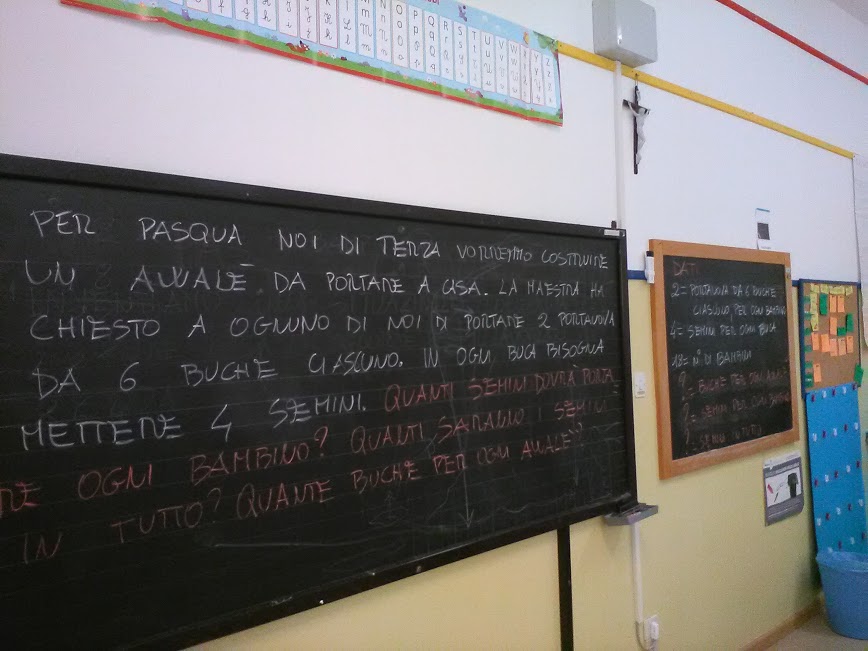 PER PASQUA NOI DI TERZA VORREMMO COSTRUIRE
UN AWALÈ DA PORTARE A CASA. LA MAESTRA HA
CHIESTO A OGNUNO DI NOI DI PORTARE 2 PORTAUOVA
DA 6 BUCHE CIASCUNO. IN OGNI BUCA BISOGNA
METTERE 4 SEMINI. QUANTI SEMINI DOVRÀ PORTA
RE OGNI BAMBINO? QUANTI SARANNO I SEMINI
IN TUTTO? QUANTE BUCHE PER OGNI AWALÈ?
DATI
2= PORTAUOVA DA 6 BUCHE
CIASCUNO, PER OGNI BAMBINO
4= SEMINI PER OGNI BUCA
18= N° DI BAMBINI
?= BUCHE PER OGNI AWALÈ
?= SEMINI PER OGNI BAMBINO
?= SEMINI IN TUTTO